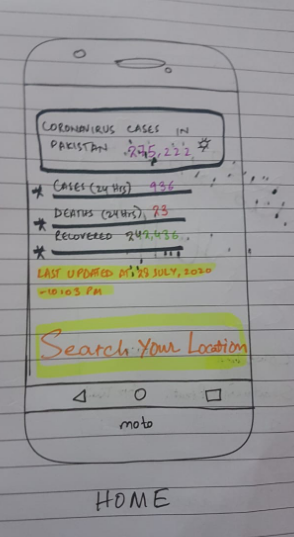 CORONAVIRUS CASES IN
PAKISTAN 275,222
* CASES (24 HRS) 936
* DEATHS (24 HRS) 23
* RECOVERED 242,436
LAST UPDATED AT: 28 JULY, 2020
-10:03 PM
Search Your Location
moto
HOME